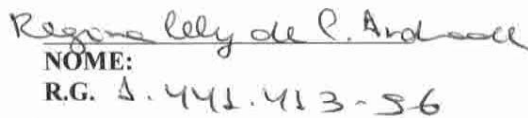 Regina Cely de C. Andrade
NOME:
R.G. 1.441.413-56